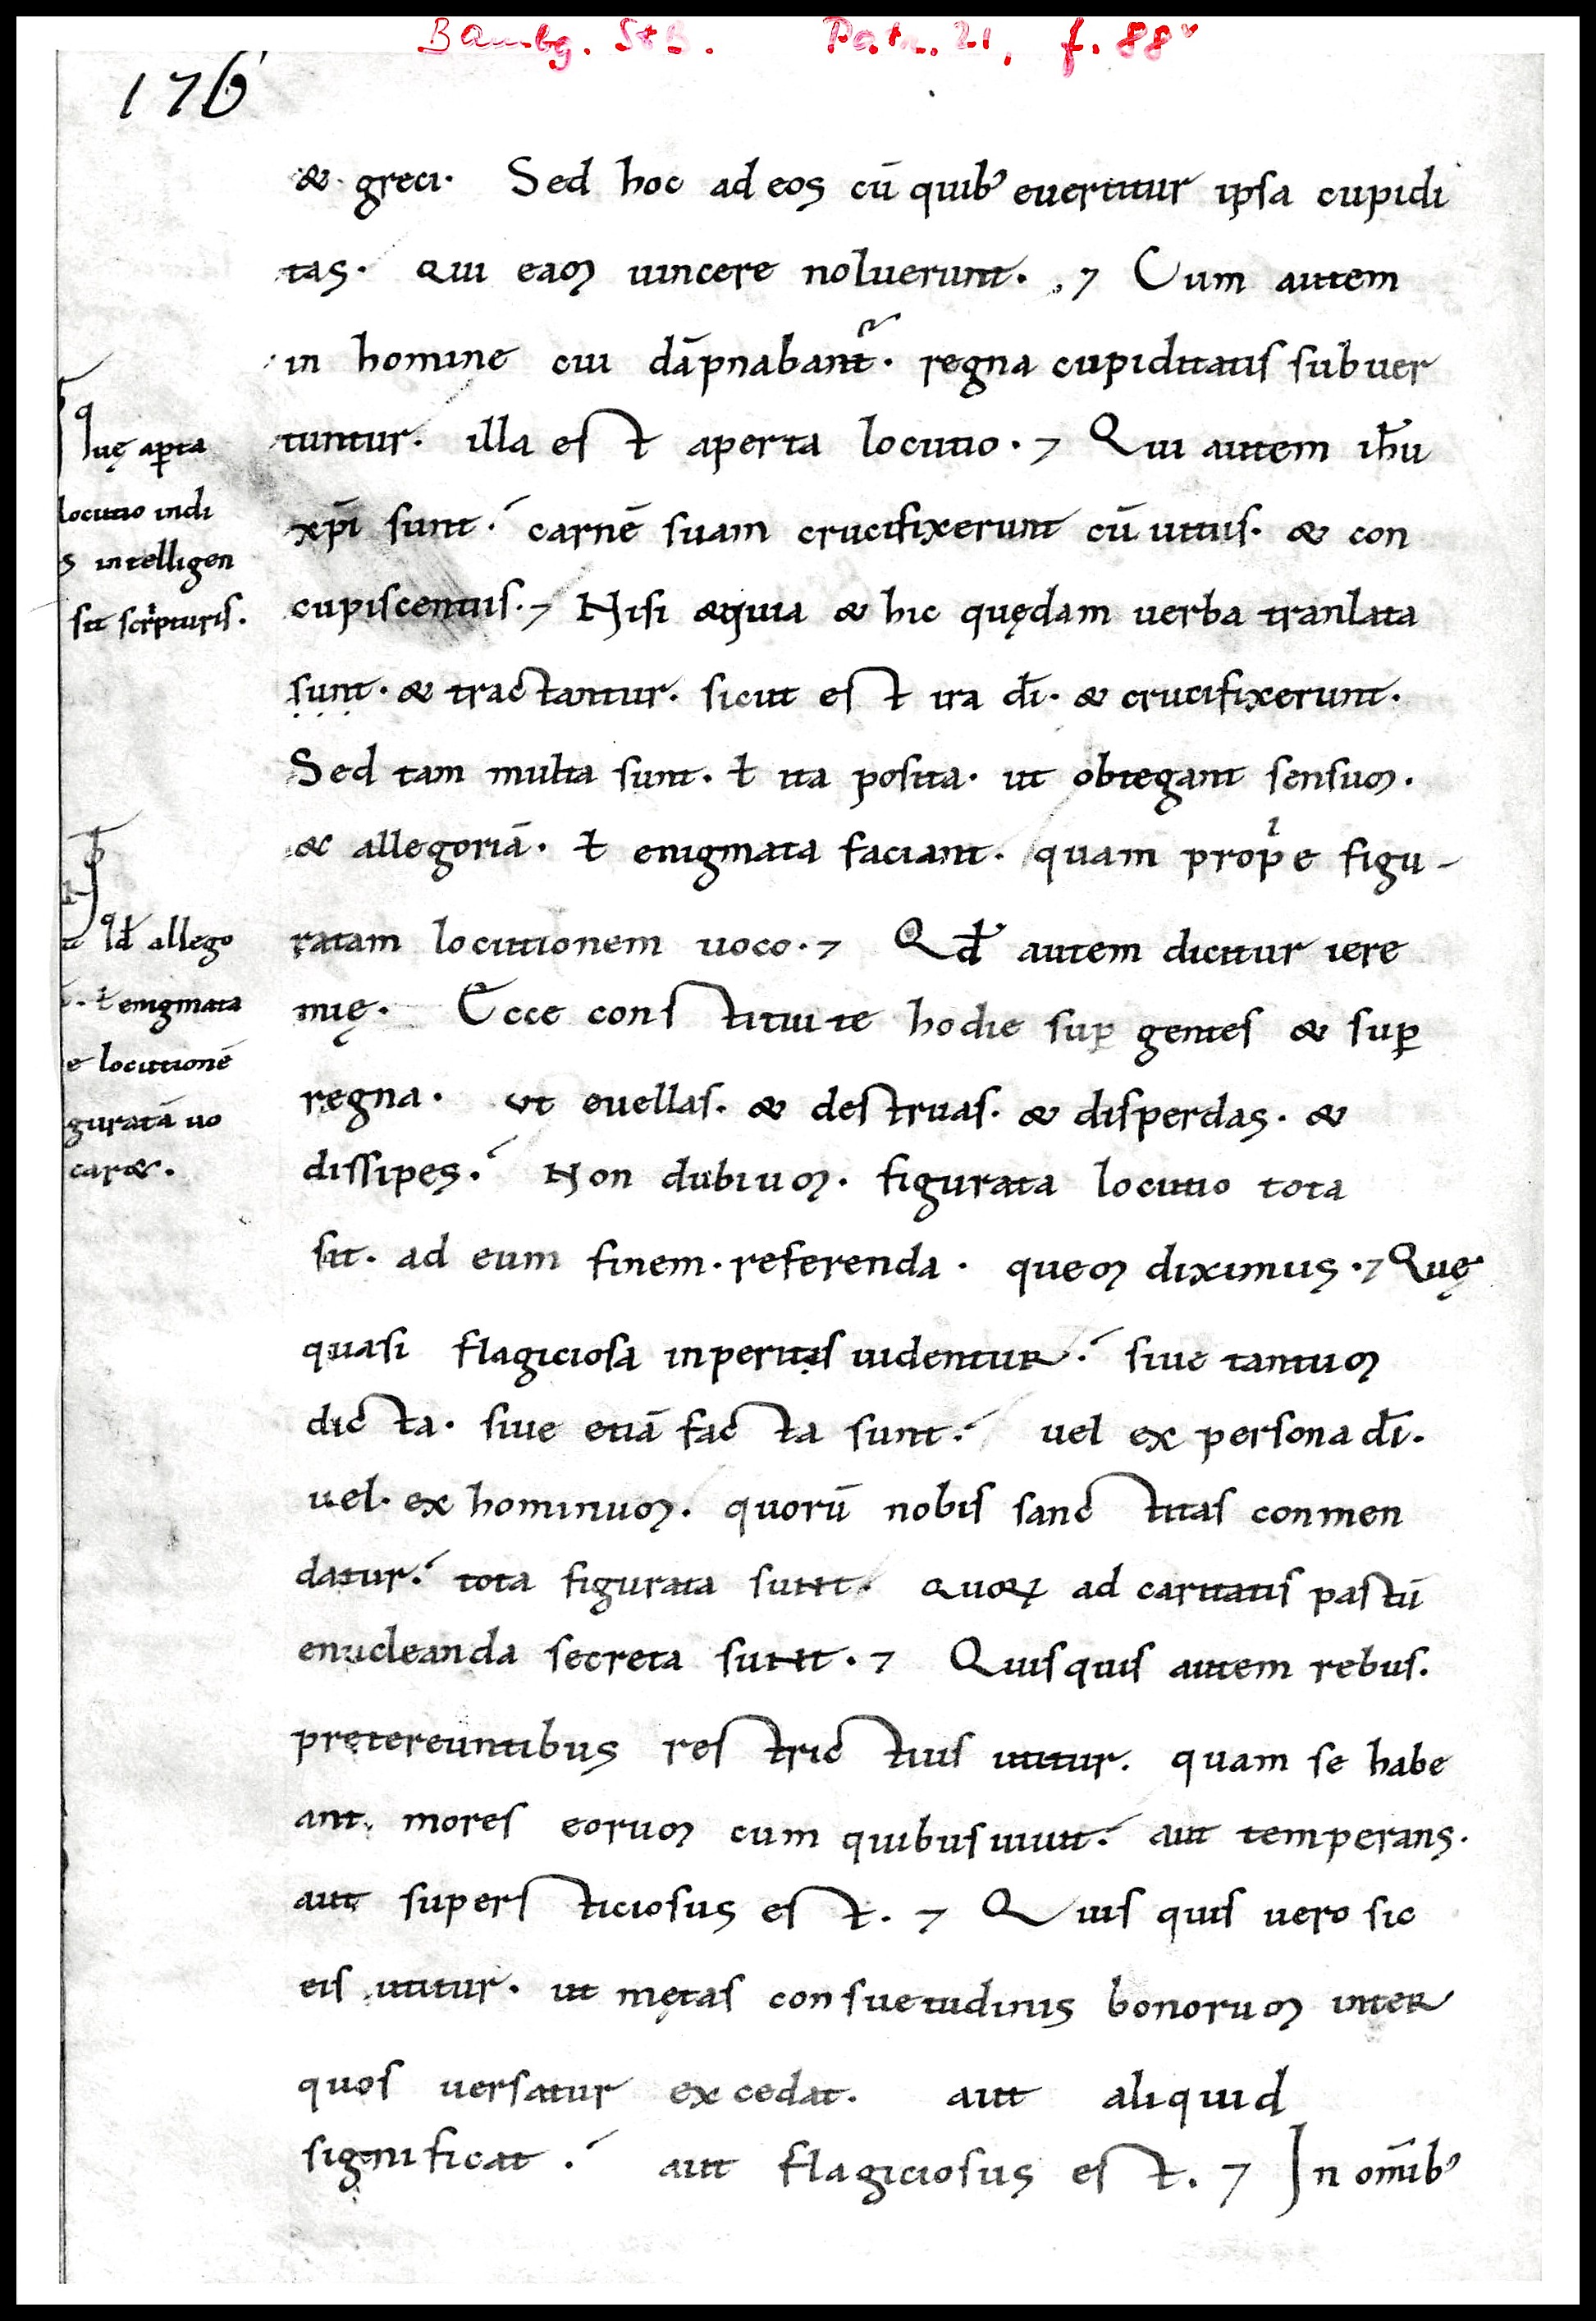 Bambg. StB. Patr. 21, f. 88v
176
& greci· Sed hoc ad eos cū quib᾽ euertitur ipsa cupidi
tas· Qui eam uincere noluerunt· Cum autem
in homine cui dāpnabant᷑· regna cupiditatis subuer
tuntur· illa est aperta locutio· Qui autem ih̄u
xp̄i sunt· carnē suam crucifixerunt cū uitiis· & con
cupiscentiis· Nisi &quia & hic quędam uerba tranlata
sunt· & tractantur· sicut est ira dī· & crucifixerunt·
Sed tam multa sunt· ł ita posita· ut obtegant sensum·
&c allegoriā· ł enigmata faciant· quam propⁱe figu-
ratam locutionem uoco· Qđ autem dicitur iere
mię· Ecce constitui te hodie suꝑ gentes & suꝑ
regna· ut euellas· & destruas· & disperdas· &
dissipes· Non dubium· figurata locutio tota
sit· ad eum finem· referenda· quem diximus· Quę
quasi flagiciosa inperitis uidentur· siue tantum
dicta· siue etiā facta sunt· uel ex persona dī·
uel· ex hominum· quorū nobis sanctitas conmen
datur· tota figurata sunt· quoꝝ ad caritatis pastū
enucleanda secreta sunt· Quisquis autem rebus·
pretereuntibus restrictius utitur· quam se habe
ant· mores eorum cum quibus uiuit· aut temperans·
aut supersticiosus est· Quisquis uero sic
eis utitur· ut mętas consuetudinis bonorum inter
quos uersatur excedat· aut aliquid
significat· aut flagiciosus est· In om̄ib᾽
quę aꝑta
locutio indi
s intelligen
sit scrⁱpturis·
qđ allego
ł enigmata
e locutionē
guratā uo
car&·